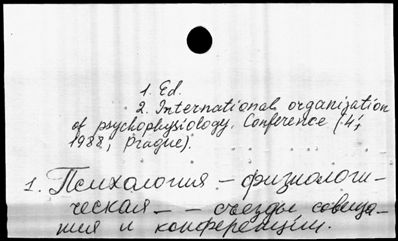 1. Ed.
2. International organization
of psychophysiology. Conference (.4;
1988; Prague).
1. Психология - физиологи-
ческая - - съезды, совеща-
ния и конференции.